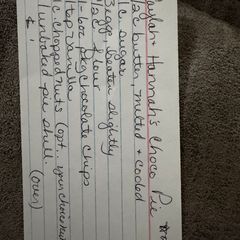 Kaylah & Hannah's Choco Pie
1/2 c butter, melted & cooled
1 c. sugar
3 eggs beaten slightly
1/2 c flour
1-6oz pkg chocolate chips
1 tsp vanilla
1 c. chopped nuts (opt.. your choice
1 unbaked pie shell.
(over)